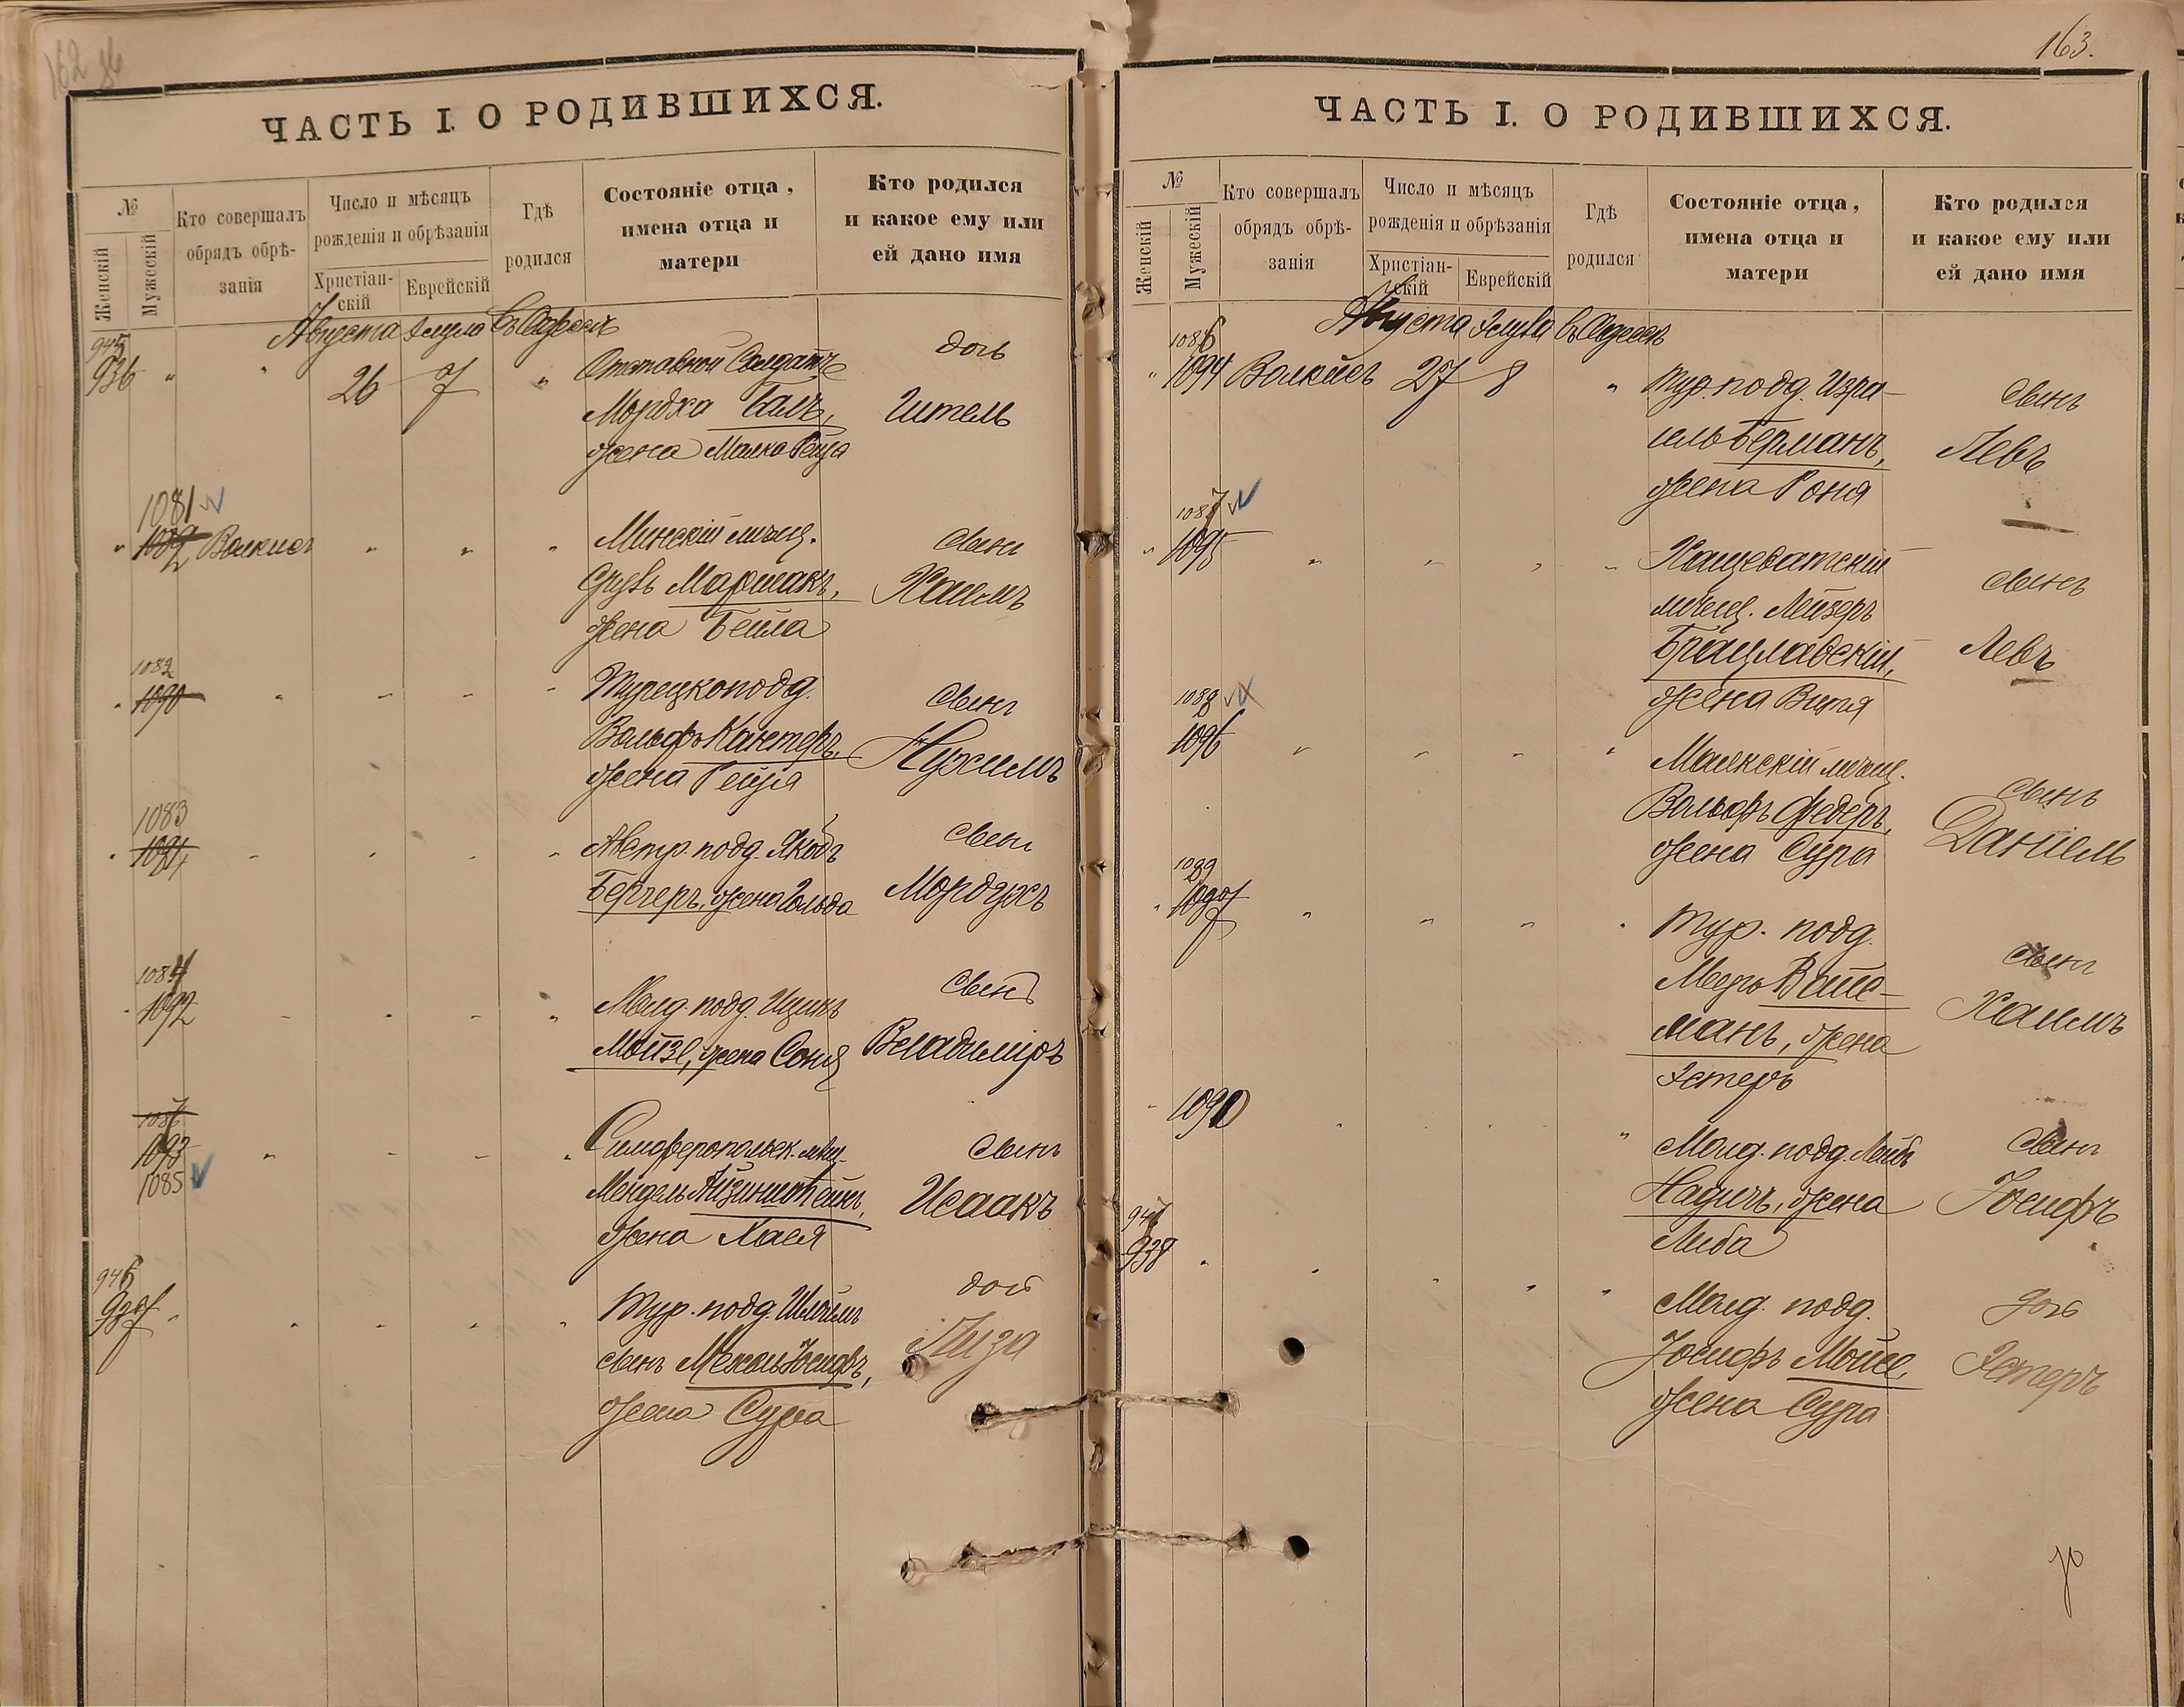 162
ЧАСТЬ I. О РОДИВШИХСЯ.
№
Женскій
Мужескій
Кто совершалъ обрядъ обрѣ-занія
Число и мѣсяцъ рожденія и обрѣзанія
Христіан-скій
Еврейскій
Гдѣ родился
Состояніе отца, имена отца и матери
Кто родился и какое ему или ей дано имя
Августа Элула въ Одессѣ
945
936 " " 26 7 "
Отставной Солдатъ
Мордко Балъ,
жена Малка Рейза
дочь
Ител
1081
1089 Волкисъ " " "
Минскій мѣщ.
Маршакъ,
жена Бейла
сынъ
Хаимъ
1082
1090 " " " "
Турецкоподд.
Вольфъ Кантеръ,
жена Рейзя
сынъ
Нухимъ
1083
1091 " " " "
Австр. подд. Якобъ
Бергеръ, жена Гольда
сынъ
Мордухъ
1084
1092 " " " "
Молд. подд. Ицикъ
Мойзе, жена Соня
сынъ
Владиміръ
1093
1085 " " " "
Симферопольск. мѣщ.
Мендель Айзинштейнъ,
жена Хася
сынъ
Исаакъ
946
937 " " " " "
Тур. подд.
сынъ Іосифъ,
жена Сура
дочь
Лиза
163.
ЧАСТЬ I. О РОДИВШИХСЯ.
№
Женскій
Мужескій
Кто совершалъ обрядъ обрѣ-занія
Число и мѣсяцъ рожденія и обрѣзанія
Христіан-скій
Еврейскій
Гдѣ родился
Состояніе отца, имена отца и матери
Кто родился и какое ему или ей дано имя
Августа Элула въ Одессѣ
1086
" 1094 Волкисъ 27 8 "
Тур. подд. Изра-
иль Берманъ,
жена Роня
сынъ
Левъ
1087
" 1095 " " " "
Хащеватскій
мѣщ. Лейзеръ
Брацлавскій,
жена Витя
сынъ
Левъ
1088
1096 " " " "
Маякскій мѣщ.
Вольфъ Федеръ,
жена Сура
сынъ
Даніель
1089
" 1097 " " " "
Тур. подд.
Мееръ Вайс-
манъ, жена
Эстеръ
сынъ
Хаимъ
" 1090 " " " "
Молд. подд. Лейб
Надичъ, жена
Либа
сынъ
Іосифъ
947
938 " " " " "
Молд. подд.
Іосифъ Мойсе,
жена Сура
дочь
Эстеръ